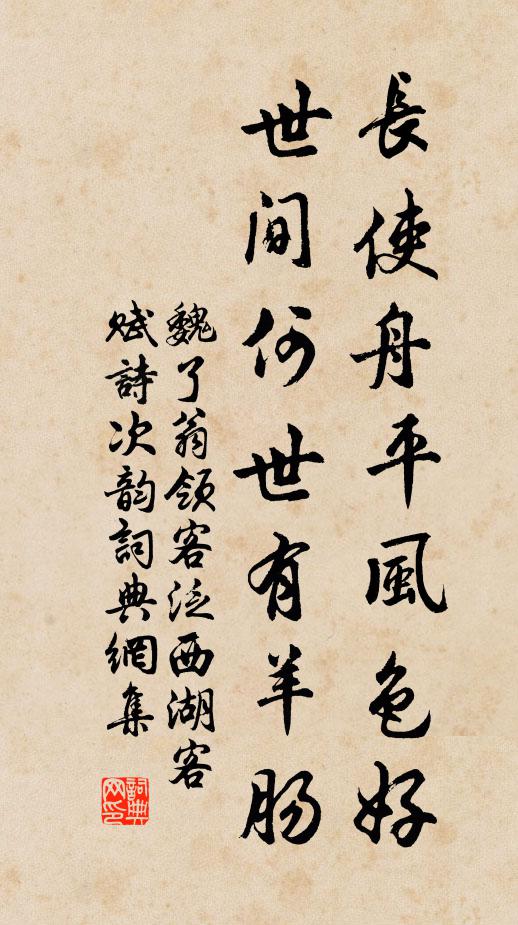 長使舟平風色好
世間何世有羊肠
魏了翁領客泛西湖客
赋詩次韵詞典網集
詞典
网印